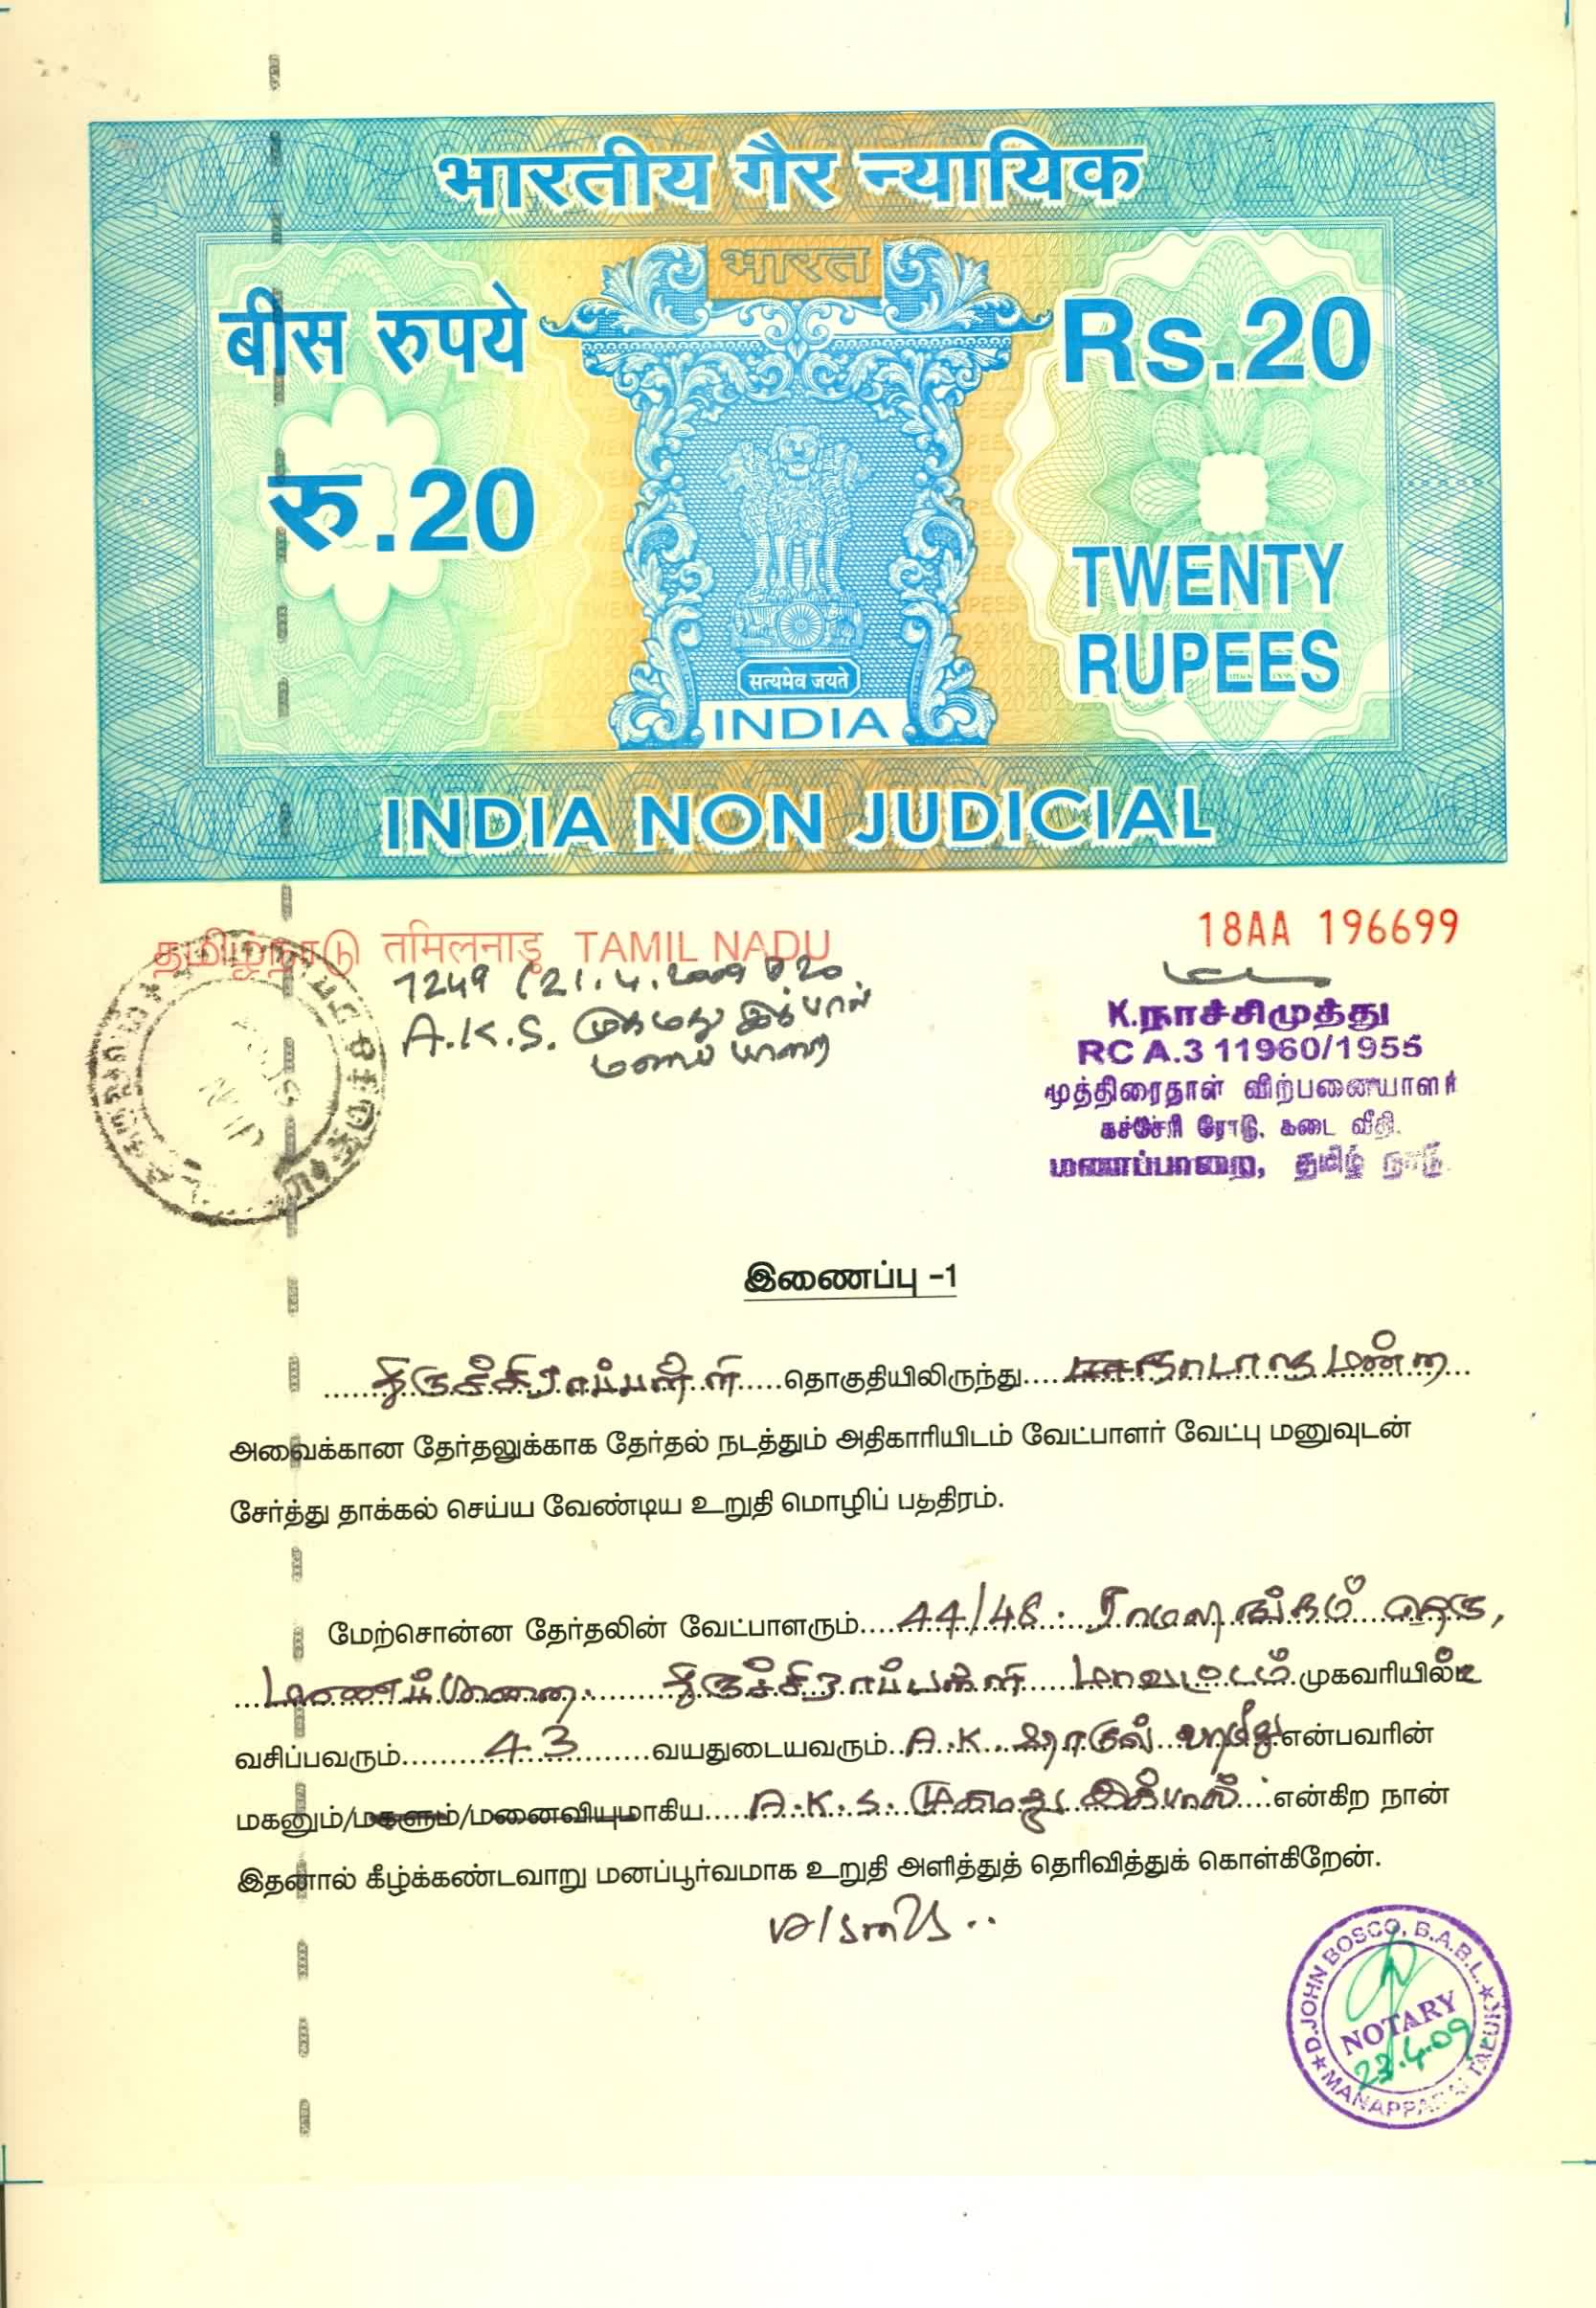 भारतीय गैर न्यायिक
भारत
बीस रुपये
Rs.20
रु.20
TWENTY
RUPEES
सत्यमेव जयते
INDIA
INDIA NON JUDICIAL
தமிழ்நாடு तमिलनाडु TAMIL NADU
18AA 196699
1249 / 21.4.2009 20
A.K.S. முகமது இக்பால்
மணப்பாறை
K.நாச்சிமுத்து
RC A.3 11960/1955
முத்திரைதாள் விற்பனையாளர்
கச்சேரி ரோடு, கடை வீதி.
மணப்பாறை, தமிழ் நாடு.
இணைப்பு -1
திருச்சிராப்பள்ளி தொகுதியிலிருந்து நாடாளுமன்ற
அவைக்கான தேர்தலுக்காக தேர்தல் நடத்தும் அதிகாரியிடம் வேட்பாளர் வேட்பு மனுவுடன்
சேர்த்து தாக்கல் செய்ய வேண்டிய உறுதி மொழிப் பத்திரம்.
மேற்சொன்ன தேர்தலின் வேட்பாளரும் 44/48. ராமலிங்கம் தெரு,
மணப்பாறை. திருச்சிராப்பள்ளி மாவட்டம் முகவரியில்
வசிப்பவரும் 43 வயதுடையவரும் A.K. என்பவரின்
மகனும்/மகளும்/மனைவியுமாகிய A.K.S. முகமது இக்பால் என்கிற நான்
இதனால் கீழ்க்கண்டவாறு மனப்பூர்வமாக உறுதி அளித்துத் தெரிவித்துக் கொள்கிறேன்.
D.JOHN BOSCO, B.A.B.L.
NOTARY
23.4.09
MANAPPARAI TALUK